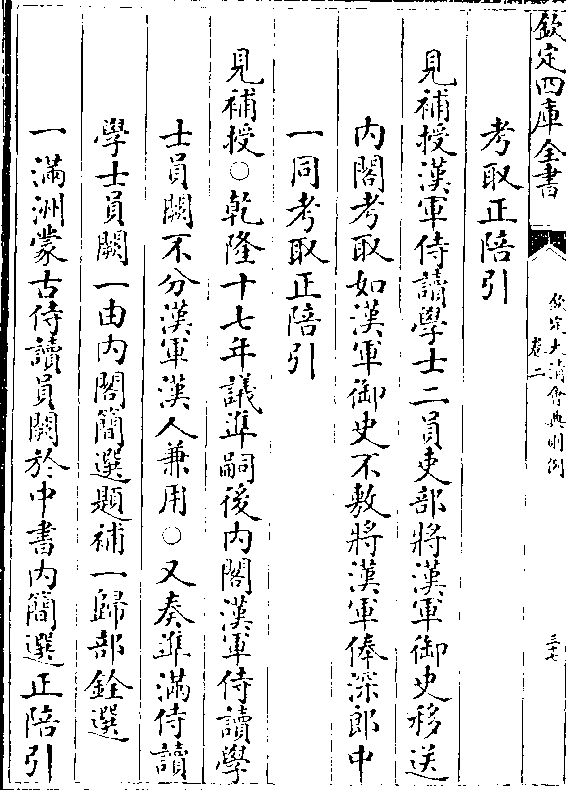 欽定四庫全書
欽定大清會典則例
卷二
三七
考取正陪引
見補授漢軍侍讀學士二員吏部將漢軍御史移送
內閣考取如漢軍御史不敷將漢軍俸深郎中
一同考取正陪引
見補授○乾隆十七年議準嗣後內閣漢軍侍讀學
士員闕不分漢軍漢人兼用○又奏準滿侍讀
學士員闕一由內閣簡選題補一歸部銓選
一滿洲蒙古侍讀員闕於中書內簡選正陪引